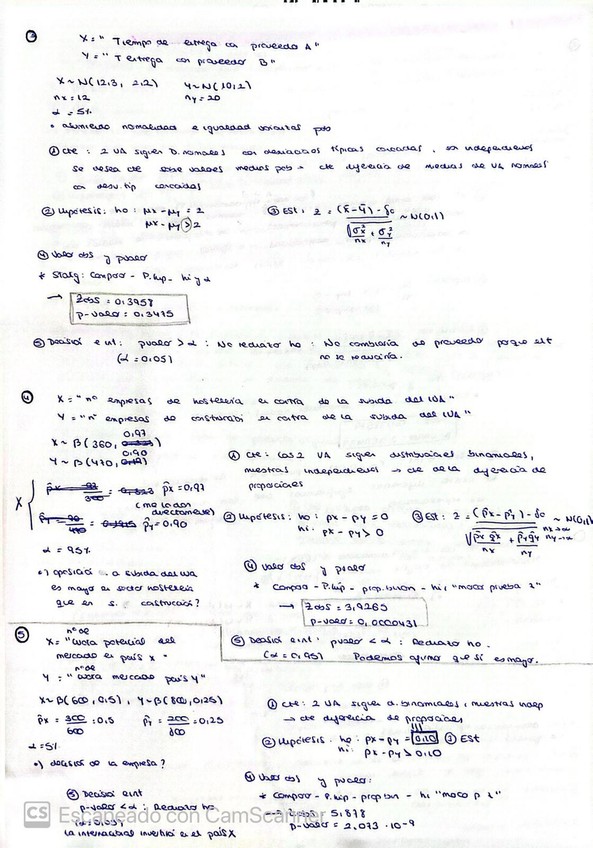 ③ X = " Tiempo de entrega con proveedor A"
Y = " T entrega con proveedor B"
X ~ N(12,3, 2,2) Y ~ N(10,2)
nx = 12 ny = 20
α = 5%
• asumiendo normalidad e igualdad
① cte : 2 VA siguen D. normales con desviaciones típicas conocidas, son independientes
se desea cte sobre valores medios pob → cte diferencia de medias de VA normales
con desv. tip conocidas
② Hipótesis: ho: μx - μy = 2
μx - μy > 2
③ Est: z = (x̄ - ȳ) - δo / √(σx²/nx + σy²/ny) ~ N(0,1)
④ Valor obs y pvalor
* Statg: Compar - P. hip - hi y α
→ Zobs = 0,3957
p-valor = 0,3475
⑤ Decisión e int: pvalor > α : No rechazo ho : No cambiaría de proveedor porque el t
(α = 0,05) no se reduciría.
④ X = " nº empresas de hostelería en contra de la subida del IVA"
Y = " nº empresas de construcción en contra de la subida del IVA"
X ~ B(360, 0,97)
Y ~ B(470, 0,90)
p̂x = 0,97
(me lo dan directamente)
p̂y = 0,90
α = 95%
•) oposición a subida del IVA
es mayor en sector hostelería
que en s. construcción?
① Cte: Las 2 VA siguen distribuciones binomiales,
muestras independientes → cte de la diferencia de
proporciones
② Hipótesis: ho: px - py = 0
hi: px - py > 0
③ Est: z = (p̂x - p̂y) - δo / √(p̂x q̂x/nx + p̂y q̂y/ny) ~ N(0,1)
nx→∞
ny→∞
④ Valor obs y pvalor
* Compar - P. hip - prop. binom - hi, "
→ Zobs = 3,9265
p-valor = 0,0000431
⑤ Decisión e int: pvalor < α : Rechazo ho.
(α = 0,95) Podemos afirmar que sí es mayor.
⑤ nº de
X = "cuota potencial del
mercado en país X"
nº de
Y = "cuota mercado país Y"
X ~ B(600, 0,5), Y ~ B(800, 0,25)
p̂x = 300/600 = 0,5 p̂y = 200/800 = 0,25
α = 5%
•) decisión de la empresa?
① Cte: 2 VA siguen d. binomiales, muestras indep
→ cte diferencia de proporciones
② Hipótesis: ho: px - py = 0,10 ③ Est
hi: px - py > 0,10
④ Valor obs y pvalor:
* Compar - P. hip - prop bin - hi
→ Zobs = 5,878
p-valor = 2,073 · 10-9
⑤ Decisión e int
p-valor < α : Rechazo ho
(α = 0,05)
La internacional invertiría en el país X
CS Escaneado con CamScanner